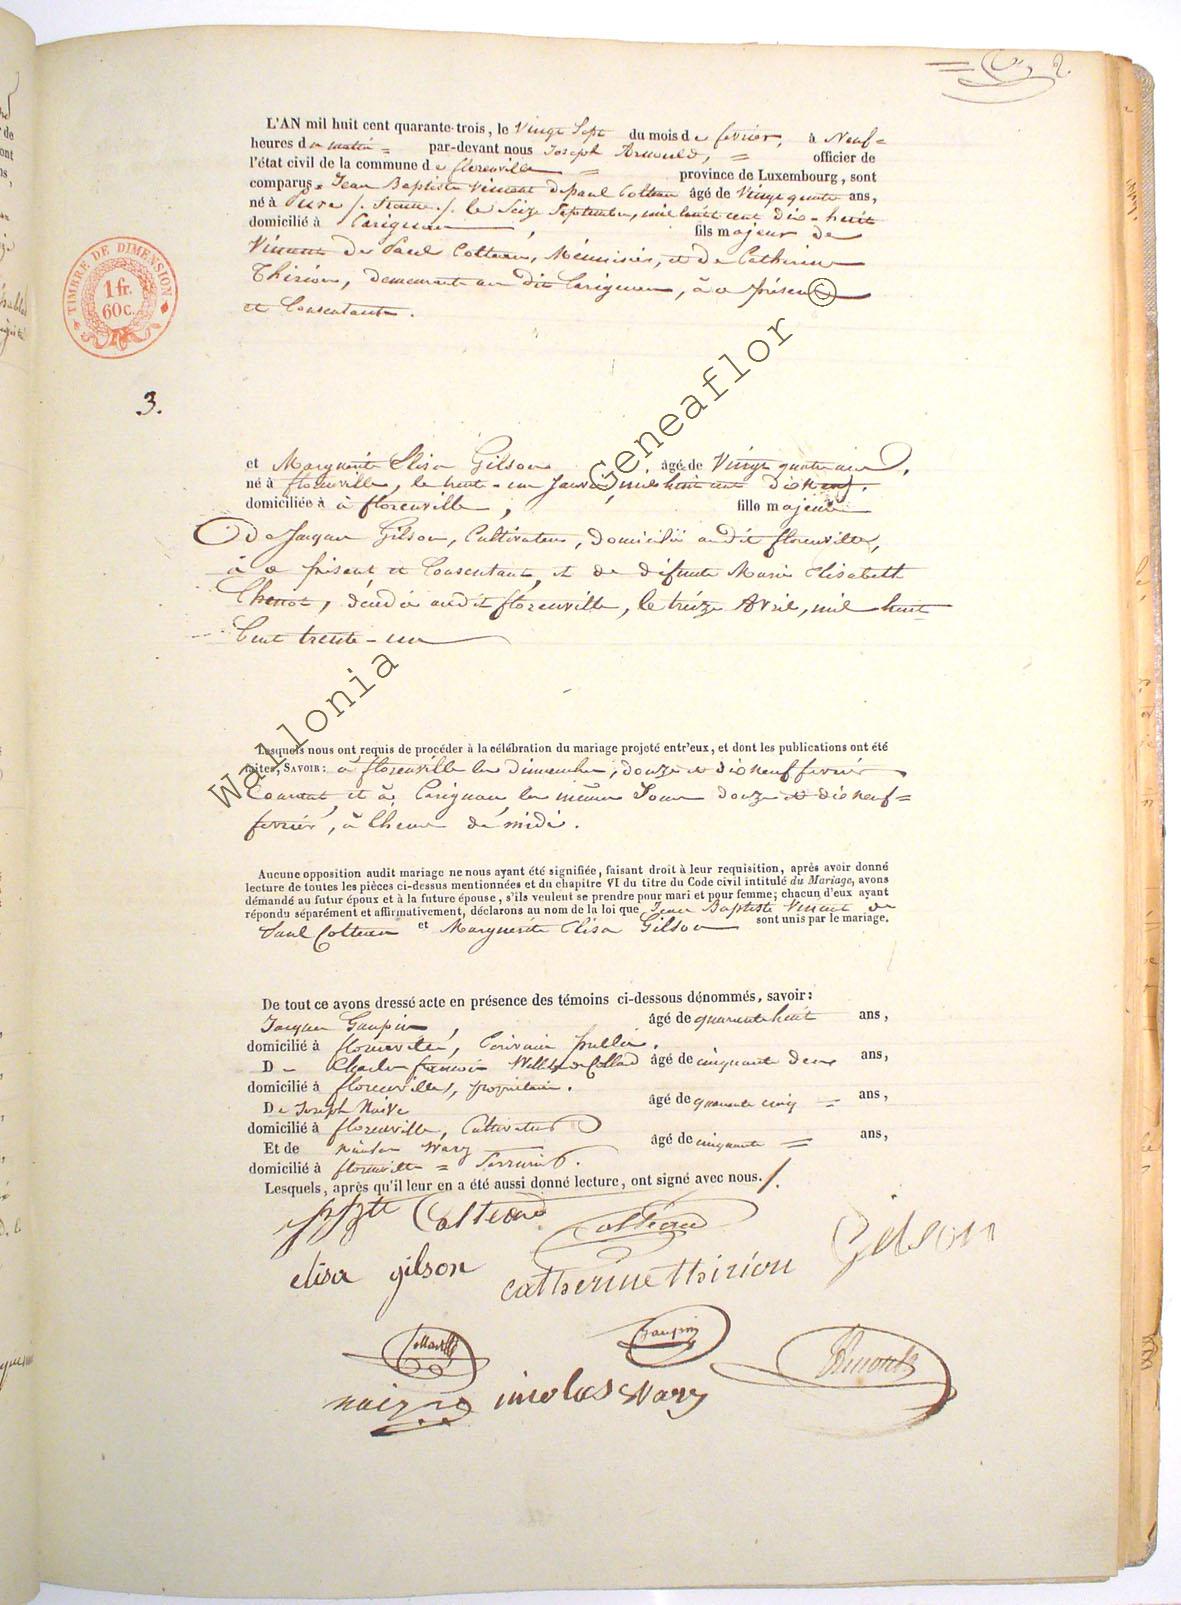 2.
L'AN mil huit cent quarante-trois, le Vingt Sept du mois de fevrier, à Neuf=
heures du matin = par-devant nous Joseph Arnould, = officier de
l'état civil de la commune de florenville = province de Luxembourg, sont
comparus Jean Baptiste Vincent depaul Colteau âgé de Vingt quatre ans,
né à Pure /. france /. le Seize Septembre, mil huit cent dix-huit
domicilié à Carignan, fils majeur de
Vincent de Paul Colteau, Menuisier, et de Catherine
Thirion, demeurants au dit Carignan, à ce présents
et Consentants.
TIMBRE DE DIMENSION
1 fr.
60 c.
3.
et Marguerite Elisa Gilson, âgé de Vingt quatre ans,
né à florenville, le trente-un Janvier, mil huit cent dix neuf.
domiciliée à à florenville, fille majeure
de Jacques Gilson, Cultivateur, domicilié audit florenville,
à ce présent et Consentant, et de défunte Marie Elisabeth
Thenot, décédée audit florenville, le treize Avril, mil huit
Cent trente-un
Lesquels nous ont requis de procéder à la célébration du mariage projeté entr'eux, et dont les publications ont été
faites, SAVOIR: à florenville les Dimanches, douze et dix neuf fevrier
Courant, et à Carignan les mêmes Jours douze et dix neuf=
fevrier, à l'heure de midi.
Aucune opposition audit mariage ne nous ayant été signifiée, faisant droit à leur requisition, après avoir donné
lecture de toutes les pièces ci-dessus mentionnées et du chapitre VI du titre du Code civil intitulé du Mariage, avons
démandé au futur époux et à la future épouse, s'ils veulent se prendre pour mari et pour femme; chacun d'eux ayant
répondu séparément et affirmativement, déclarons au nom de la loi que Jean Baptiste Vincent de
Paul Colteau et Marguerite Elisa Gilson sont unis par le mariage.
De tout ce avons dressé acte en présence des témoins ci-dessous dénommés, savoir:
Jacques Goupin, âgé de quarante huit ans,
domicilié à florenville, Ecrivain public.
De Charles francois Collard âgé de cinquante deux ans,
domicilié à florenville, propriétaire.
De Joseph Naisse âgé de quarante cinq = ans,
domicilié à florenville, Cultivateur
Et de nicolas Wary âgé de cinquante = ans,
domicilié à florenville = Serrurier.
Lesquels, après qu'il leur en a été aussi donné lecture, ont signé avec nous./.
Colteau Colteau Gilson
elisa gilson catherine thirion
Goupin Arnould
nicolas Wary
Wallonia Geneaflor ©